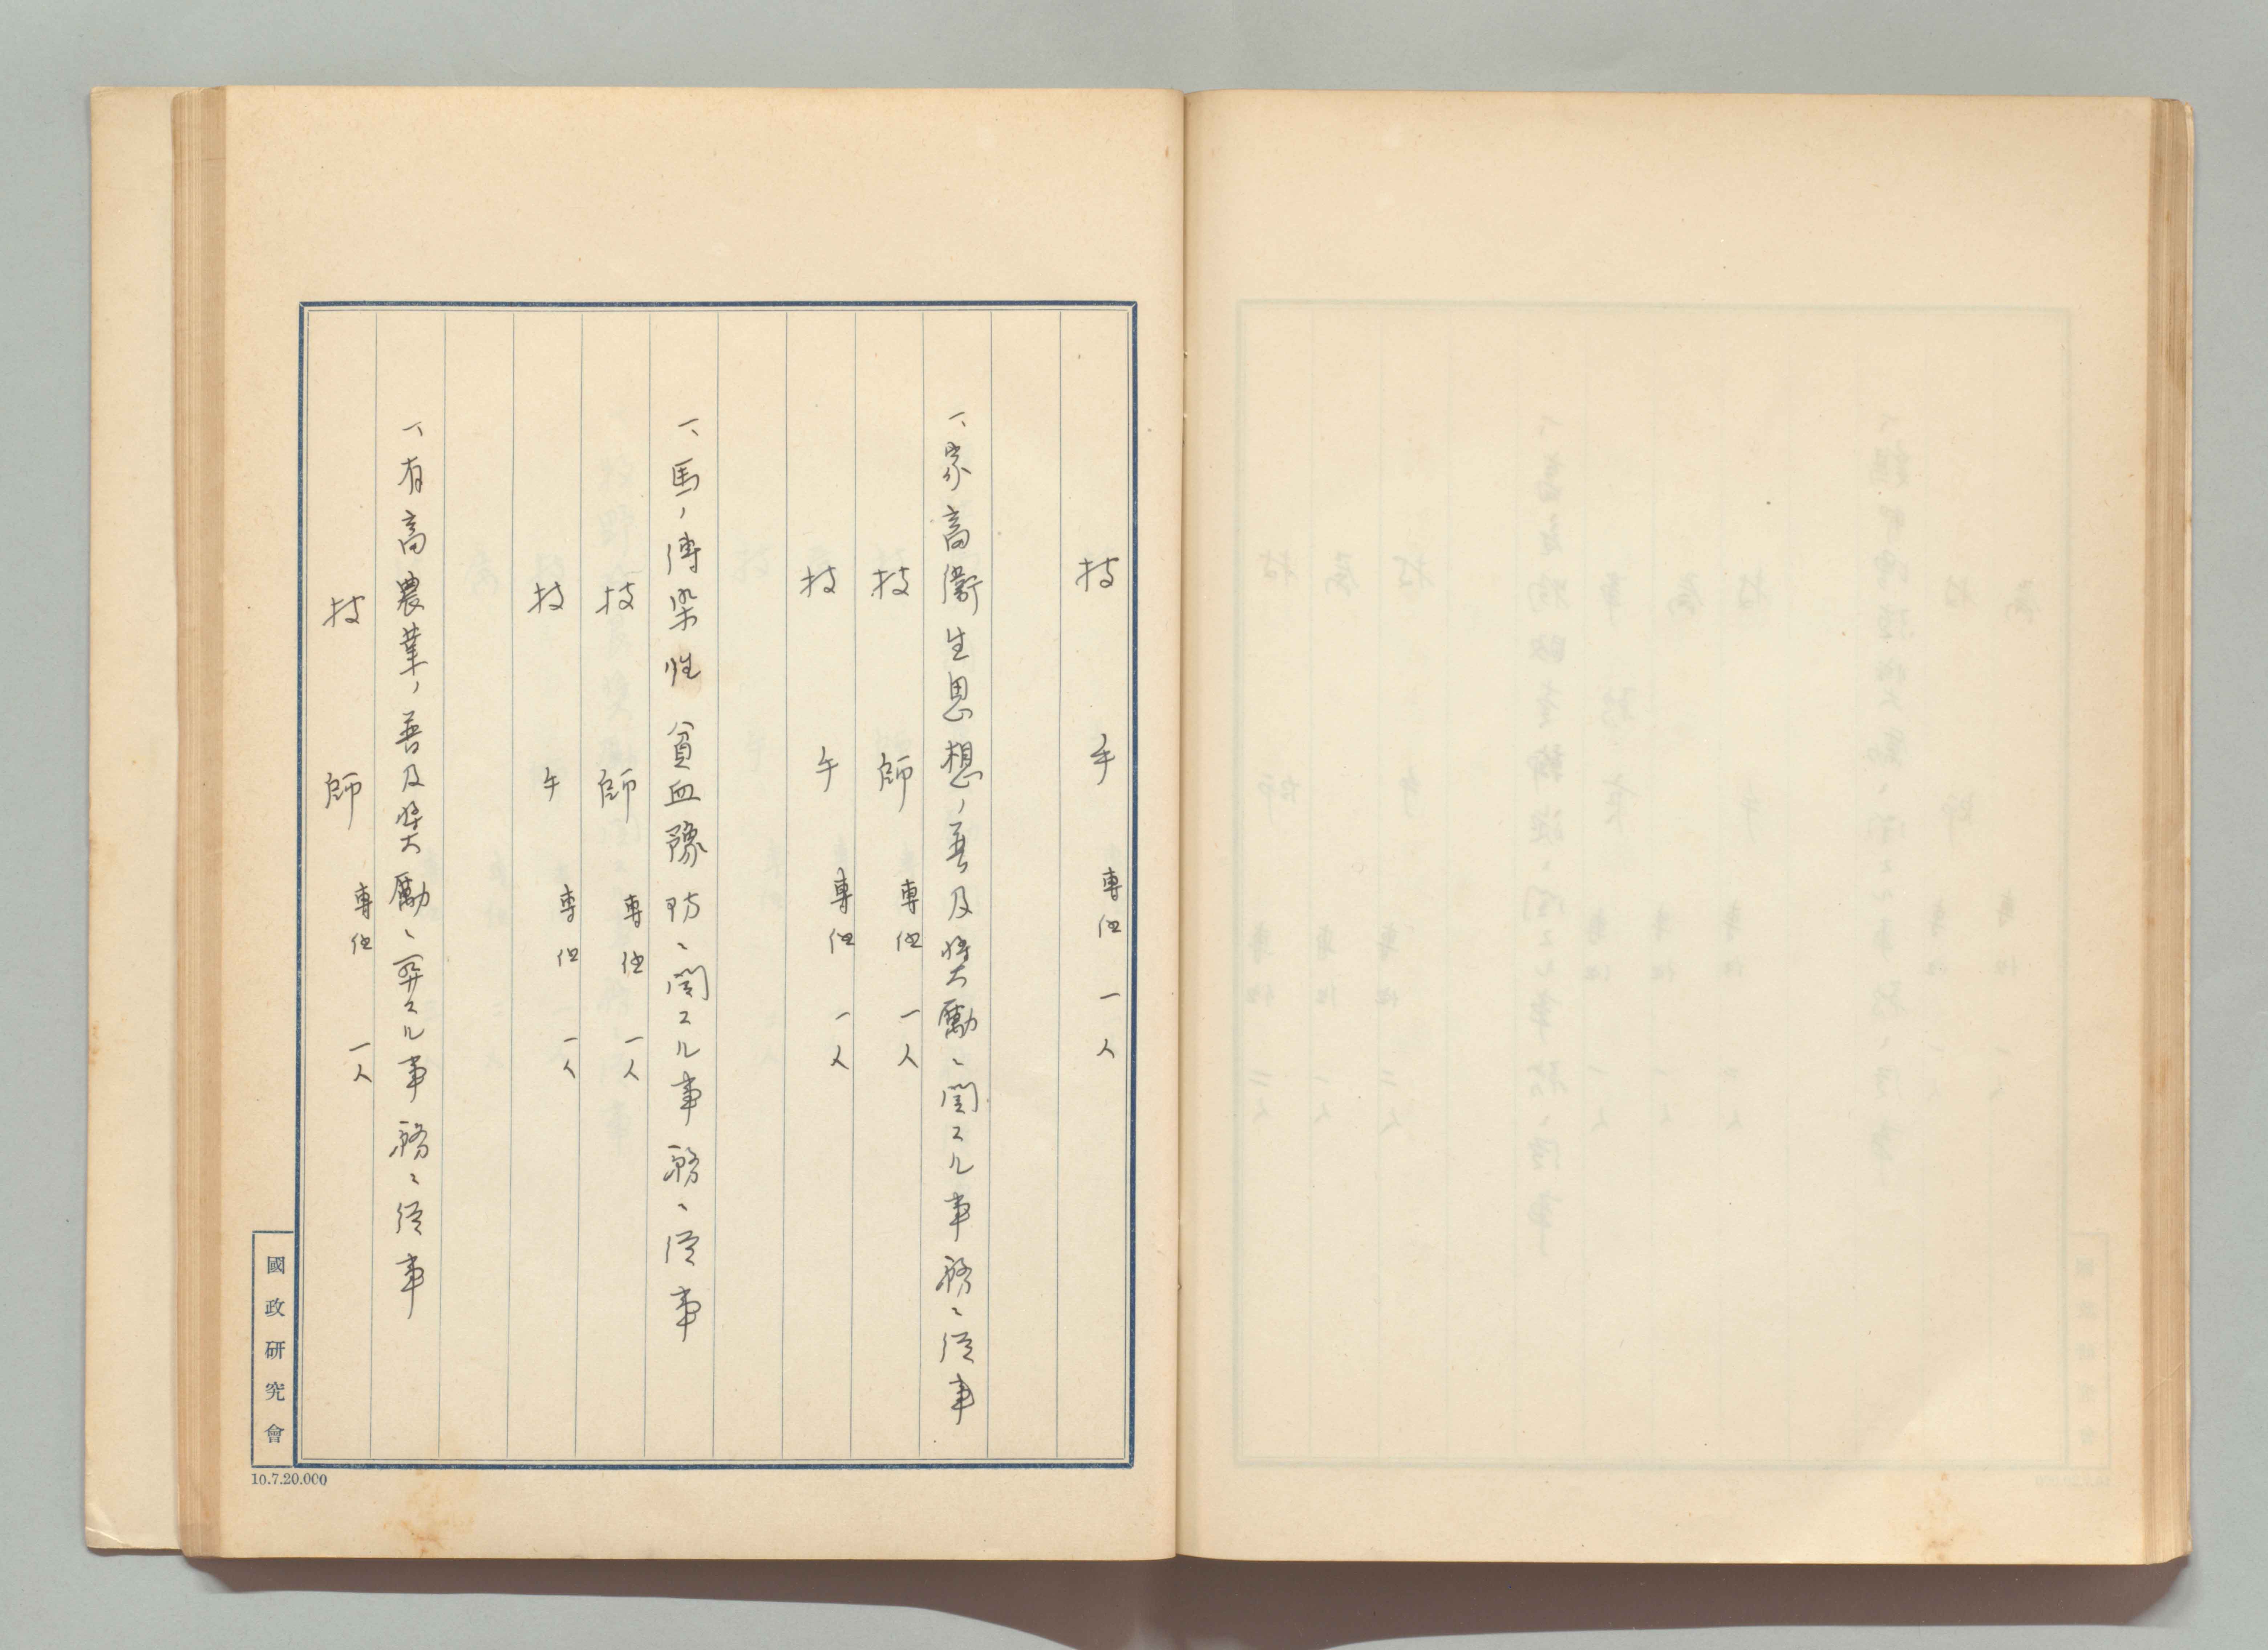 技手 專任 一人
一、家畜衞生思想ノ普及奨勵ニ関スル事務ニ従事
技師 專任 一人
技手 專任 一人
一、馬ノ傳染性貧血豫防ニ関スル事務ニ従事
技師 專任 一人
技手 專任 一人
一、有畜農業ノ普及奨勵ニ関スル事務ニ従事
技師 專任 一人
國政研究會
10.7.20.000